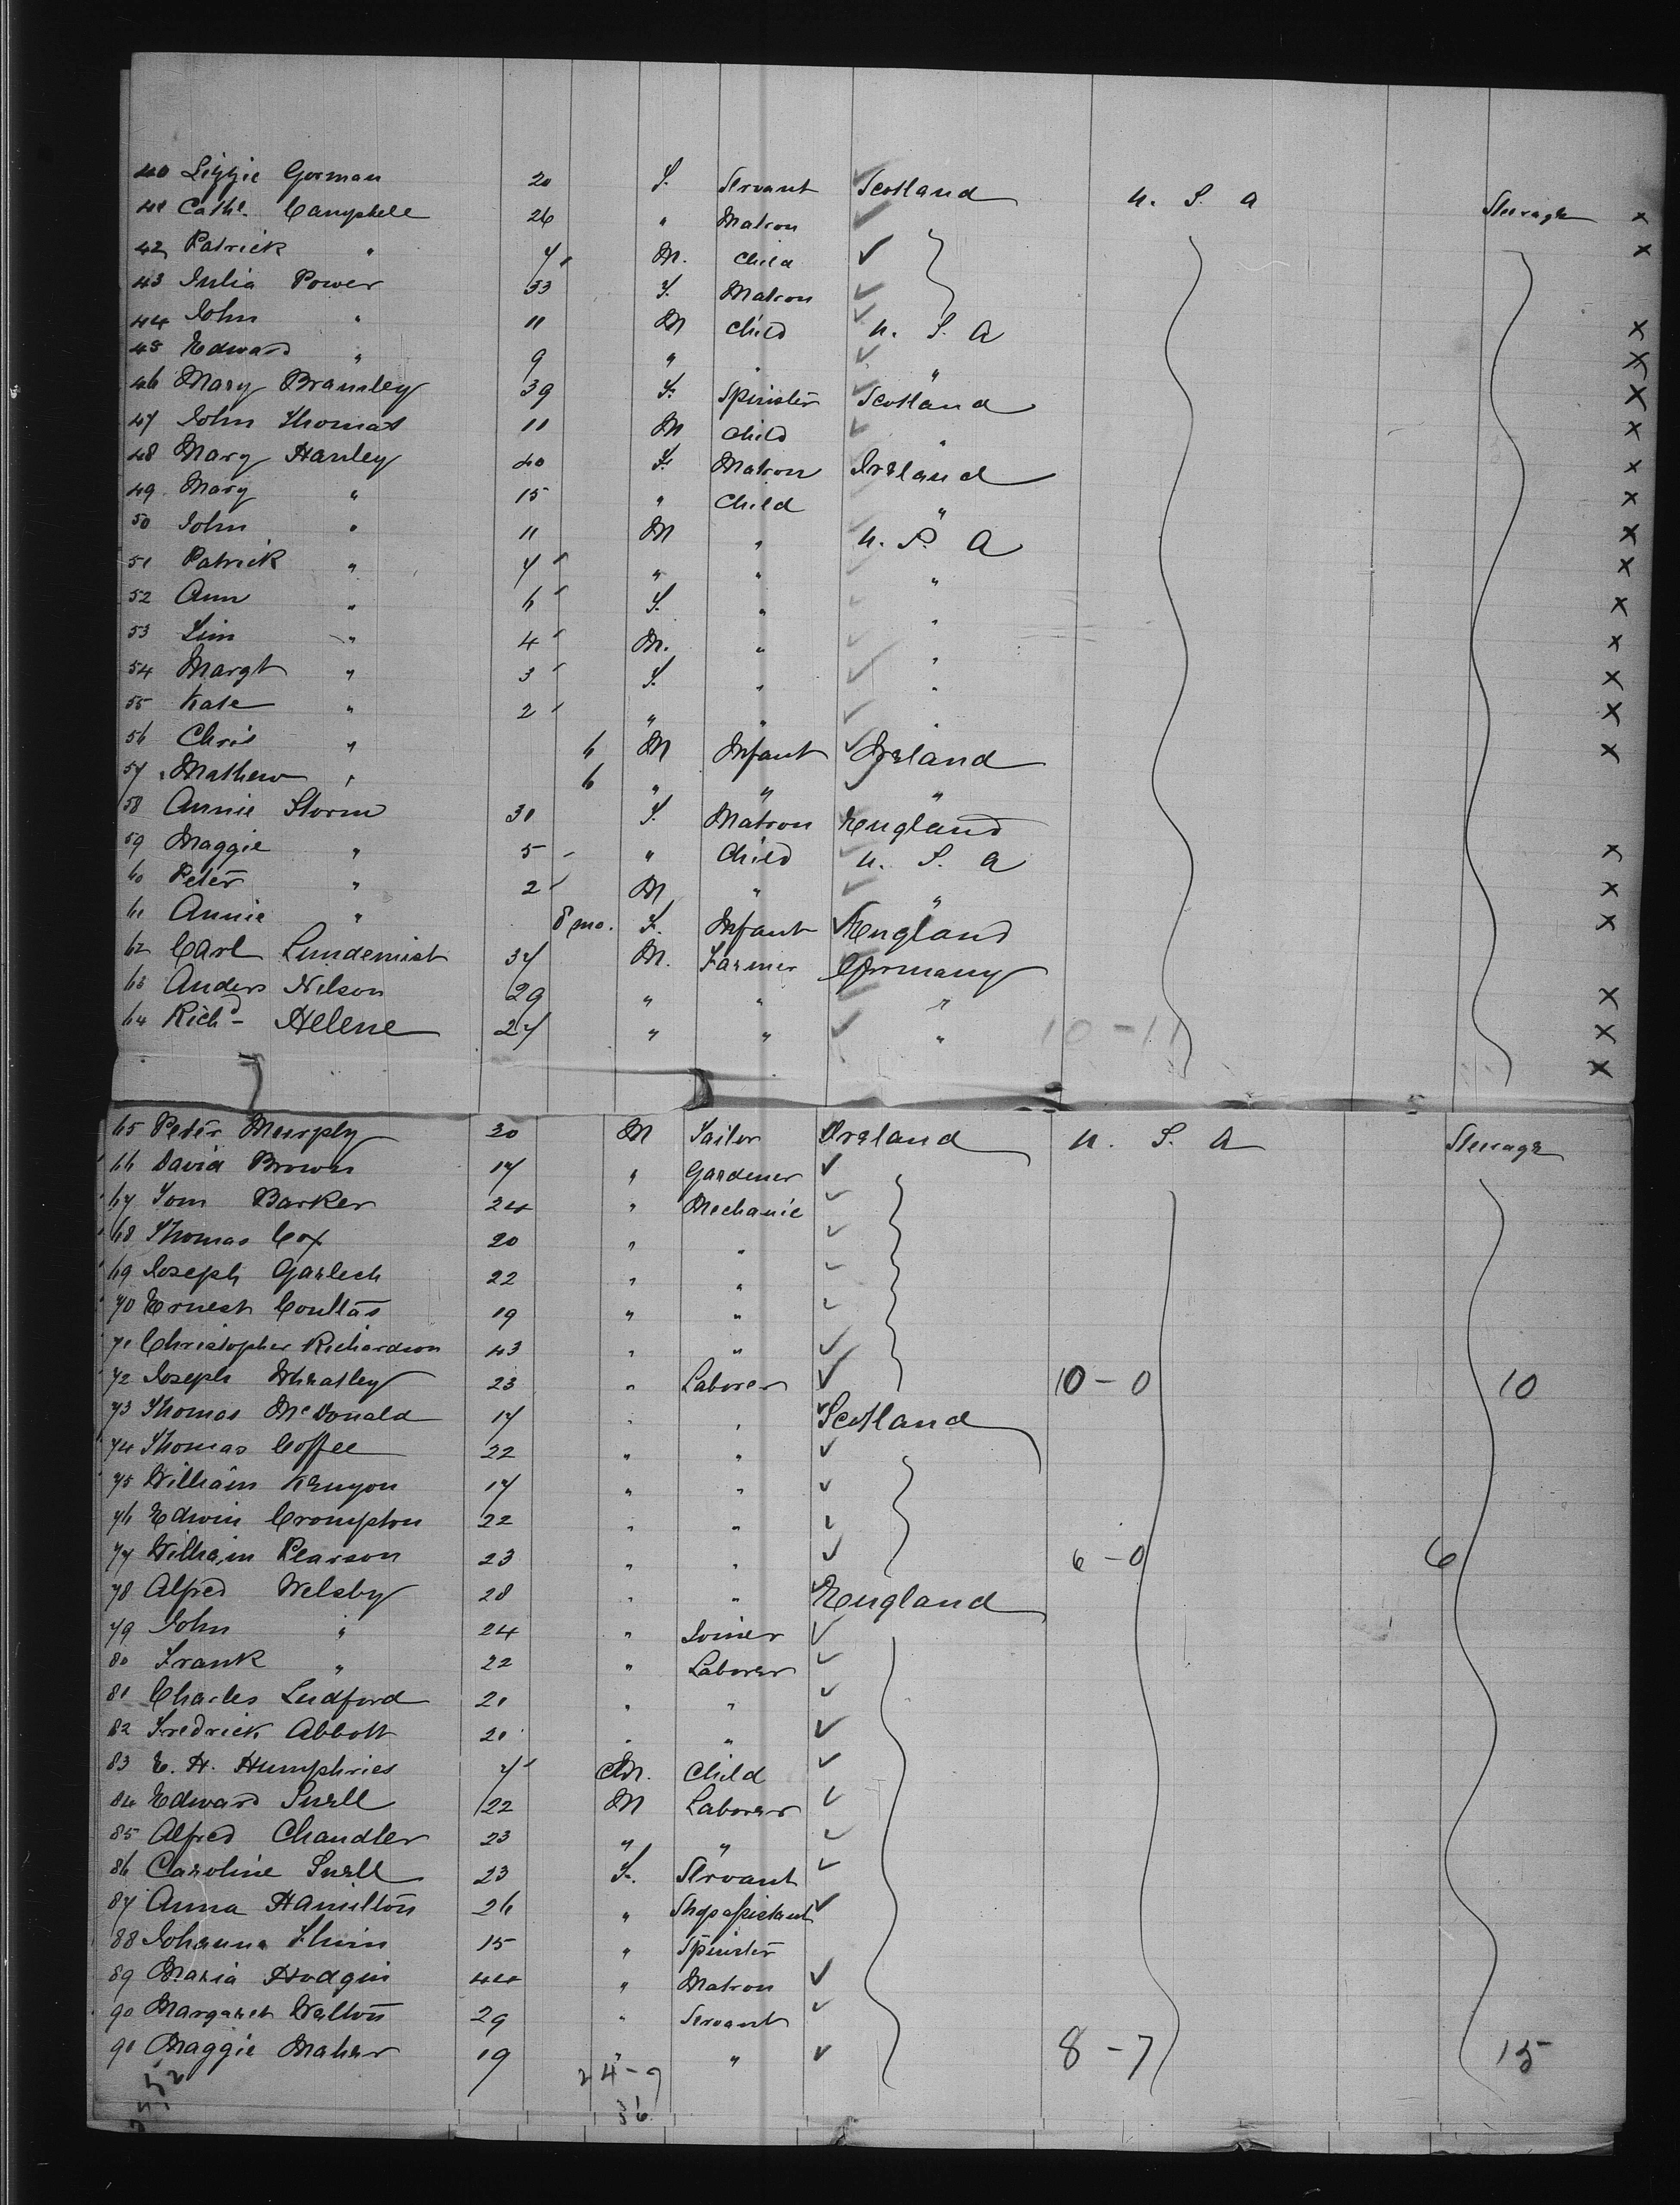 40 Lizzie Gorman 20 F. Servant Scotland U. S. A Steerage x
41 Cathe. Campbell 26 " Matron x
42 Patrick " 7 M. Child
43 Julia Power 33 F. Matron
44 John " 11 M Child U. S. A x
45 Edward " 9 " " " x
46 Mary Bramley 39 F. Spinster Scotland x
47 John Thomas 11 M Child " x
48 Mary Hanley 40 F. Matron Ireland x
49 Mary " 15 " Child " x
50 John " 11 M " U. S. A x
51 Patrick " 7 " " " x
52 Ann " 6 F. " " x
53 " 4 M. " " x
54 Margt " 3 F. " " x
55 Kate " 2 " " " x
56 Chris " 6 M Infant Ireland x
57 Mathew " 6 " " "
58 Annie Storm 31 F. Matron England
59 Maggie " 5 " Child U. S. A x
60 Peter " 2 M " " x
61 Annie " 8 mo. F. Infant England x
62 Carl 37 M. Farmer Germany
63 Anders Nilson 29 " " " x
64 Richd Helene 27 " " " 10-11 x
x
65 Peter Murphy 30 M Sailor Ireland U. S. A Steerage
66 David Brown 17 " Gardener
67 Tom Barker 24 " Mechanic
68 Thomas Cox 20 " "
69 Joseph Garlech 22 " "
70 Ernest Coultas 19 " "
71 Christopher Richardson 43 " "
72 Joseph Wheatley 23 " Laborer 10-0 10
73 Thomas McDonald 17 " " Scotland
74 Thomas Coffee 22 " "
75 William Kenyon 17 " "
76 Edwin Crompton 22 " "
77 William Pearson 23 " " 6-0 6
78 Alfred Welsby 28 " " England
79 John " 24 " Joiner
80 Frank " 22 " Laborer
81 Charles Ludford 21 " "
82 Fredrick Abbott 21 " "
83 E. H. Humphries 7 M. Child
84 Edward Snell 22 M Laborer
85 Alfred Chandler 23 " "
86 Caroline Snell 23 F. Servant
87 Anna Hamilton 26 " Shopassistant
88 Johanna 15 " Spinster
89 Maria Hodgin 44 " Matron
90 Margaret Walton 29 " Servant
91 Maggie Maher 19 " " 8-7 15
24-9
36